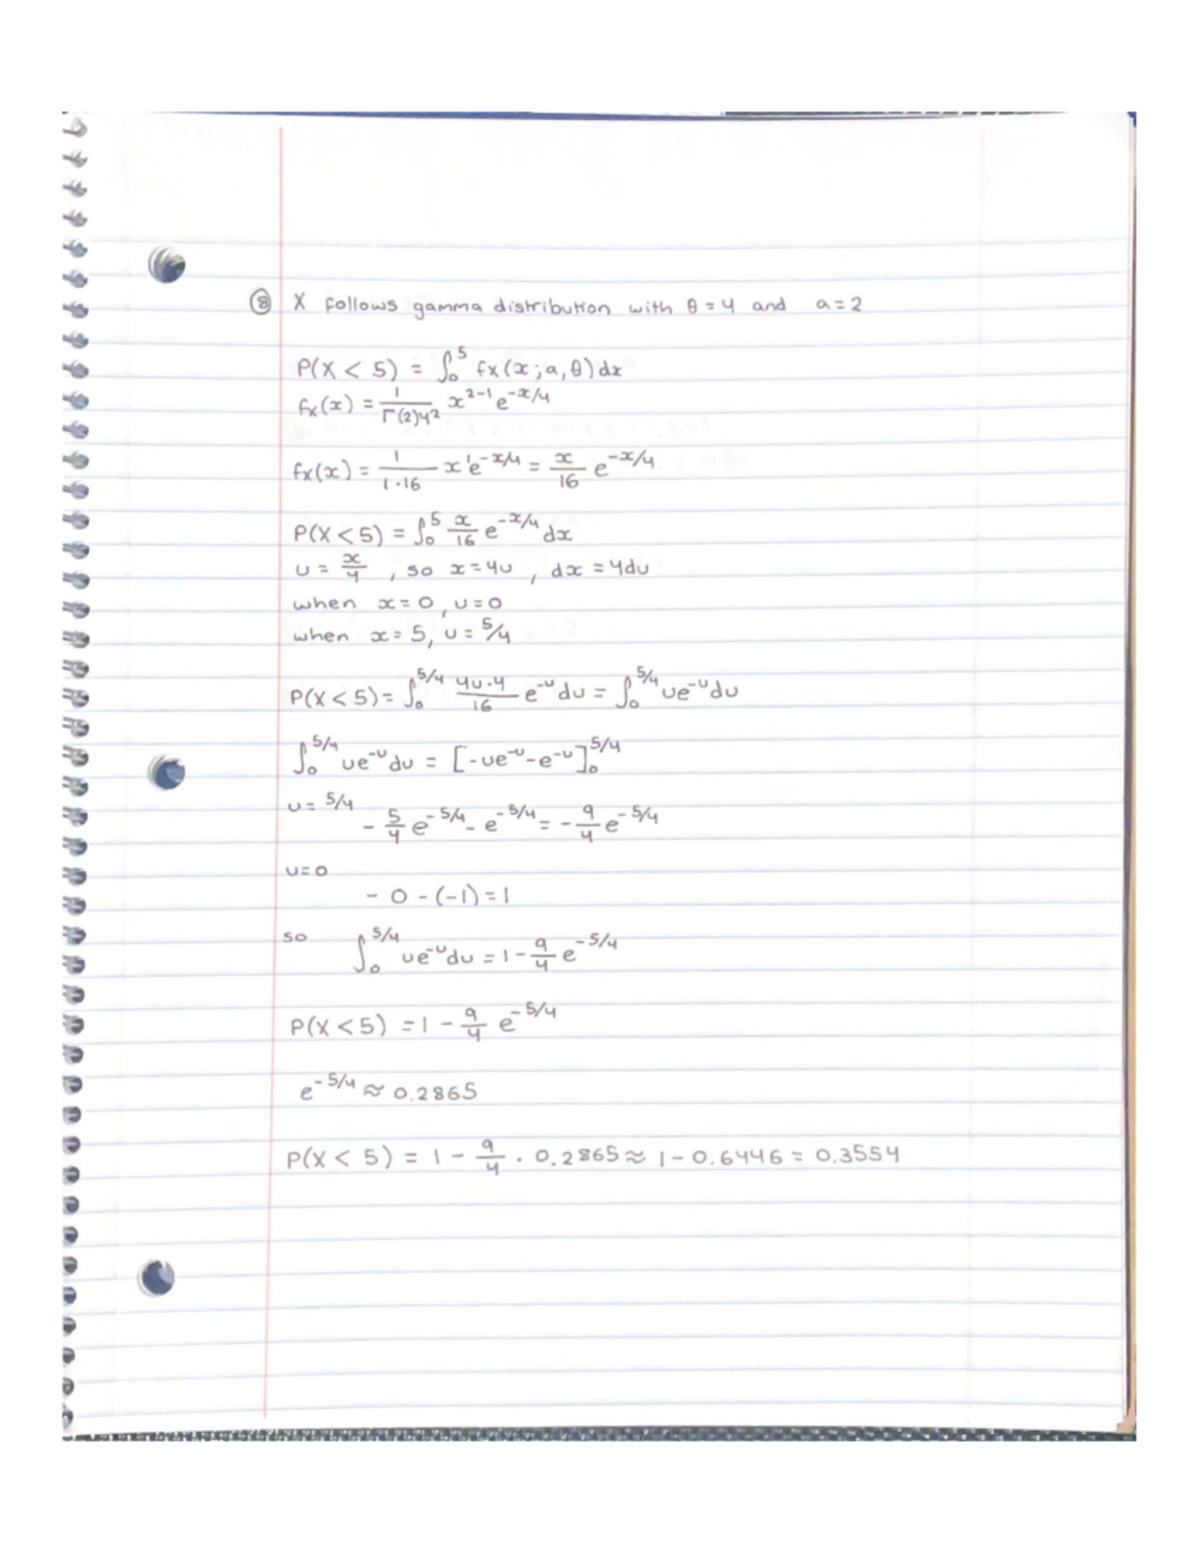 ⑧ X follows gamma distribution with θ = 4 and a = 2
P(X < 5) = ∫₀⁵ fx(x; a, θ) dx
fx(x) = 1/(Γ(2)4²) x²⁻¹ e^(-x/4)
fx(x) = 1/(1·16) x¹e^(-x/4) = x/16 e^(-x/4)
P(X < 5) = ∫₀⁵ x/16 e^(-x/4) dx
u = x/4 , so x = 4u , dx = 4du
when x = 0, u = 0
when x = 5, u = 5/4
P(X < 5) = ∫₀^(5/4) (4u·4)/16 e^(-u) du = ∫₀^(5/4) ue^(-u) du
∫₀^(5/4) ue^(-u) du = [-ue^(-u) - e^(-u)]₀^(5/4)
u = 5/4
- 5/4 e^(-5/4) - e^(-5/4) = - 9/4 e^(-5/4)
u = 0
- 0 - (-1) = 1
so ∫₀^(5/4) ue^(-u) du = 1 - 9/4 e^(-5/4)
P(X < 5) = 1 - 9/4 e^(-5/4)
e^(-5/4) ≈ 0.2865
P(X < 5) = 1 - 9/4 · 0.2865 ≈ 1 - 0.6446 = 0.3554